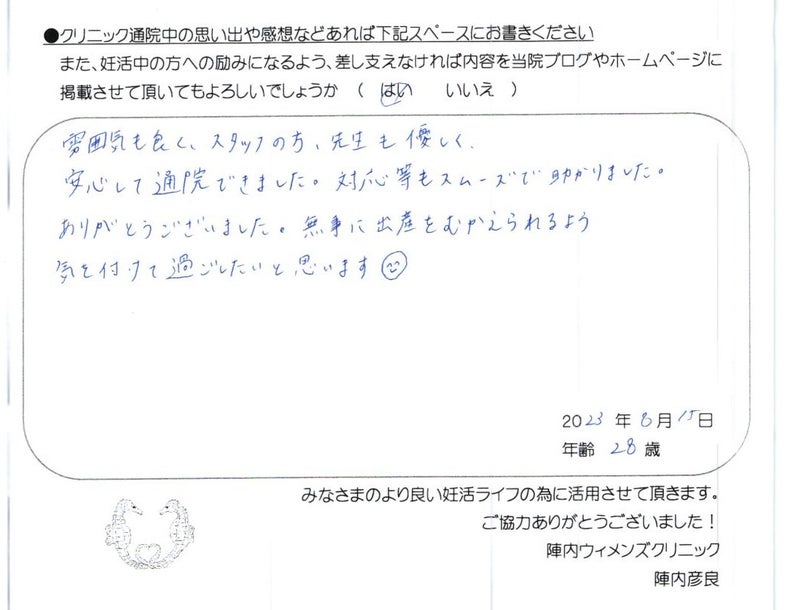 ●クリニック通院中の思い出や感想などあれば下記スペースにお書きください
また、妊活中の方への励みになるよう、差し支えなければ内容を当院ブログやホームページに
掲載させて頂いてもよろしいでしょうか （ はい いいえ ）
雰囲気も良く、スタッフの方、先生も優しく、
安心して通院できました。対応等もスムーズで助かりました。
ありがとうございました。無事に出産をむかえられるよう
気を付けて過ごしたいと思います
2023 年 8月 15日
年齢 28 歳
みなさまのより良い妊活ライフの為に活用させて頂きます。
ご協力ありがとうございました！
陣内ウィメンズクリニック
陣内彦良